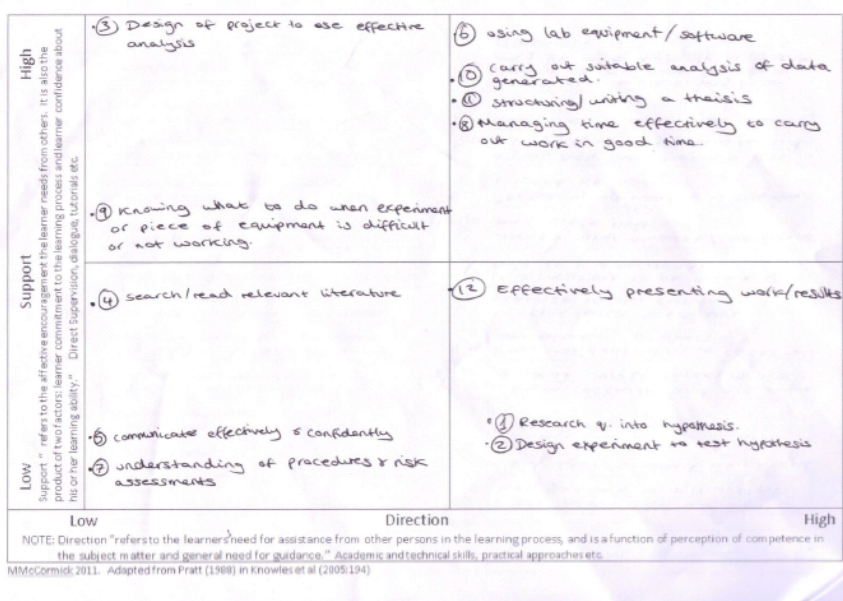 High
Support
Low
Support " refers to the affective encouragement the learner needs from others. It is also the
product of two factors: learner commitment to the learning process and learner confidence about
his or her learning ability." Direct Supervision, dialogue, tutorials etc.
·③ Design of project to use effective
analysis
·⑨ Knowing what to do when experiment
or piece of equipment is difficult
or not working.
·⑥ using lab equipment/software
·⑩ carry out suitable analysis of data
generated.
·⑪ structuring/writing a theisis
·⑧ Managing time effectively to carry
out work in good time.
·④ search/read relevant literature
·⑤ communicate effectively & confidently
·⑦ understanding of procedures & risk
assessments
·⑫ Effectively presenting work/results
·① Research q. into hypothesis.
·② Design experiment to test hypothesis
Low Direction High
NOTE: Direction "refers to the learners' need for assistance from other persons in the learning process, and is a function of perception of competence in
the subject matter and general need for guidance." Academic and technical skills, practical approaches etc.
MMcCormick 2011. Adapted from Pratt (1988) in Knowles et al (2005:194)